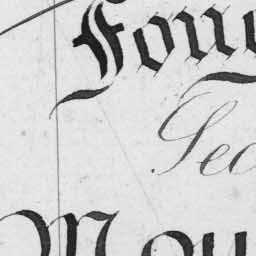 Fou
Sec
Mou